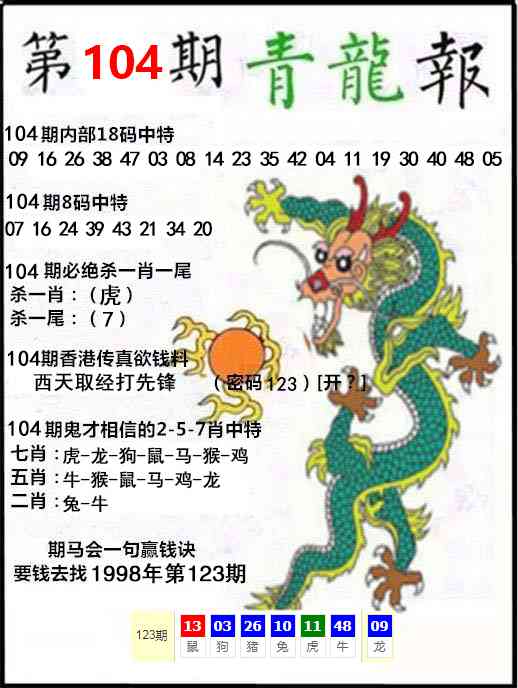 第104期青龍報
104期内部18码中特
09 16 26 38 47 03 08 14 23 35 42 04 11 19 30 40 48 05
104期8码中特
07 16 24 39 43 21 34 20
104 期必绝杀一肖一尾
杀一肖：（虎）
杀一尾：（7）
104期香港传真欲钱料
西天取经打先锋 （密码123）[开？]
104期鬼才相信的2-5-7肖中特
七肖：虎-龙-狗-鼠-马-猴-鸡
五肖：牛-猴-鼠-马-鸡-龙
二肖：兔-牛
期马会一句赢钱诀
要钱去找1998年第123期
123期 13 03 26 10 11 48 09
鼠 狗 猪 兔 虎 牛 龙